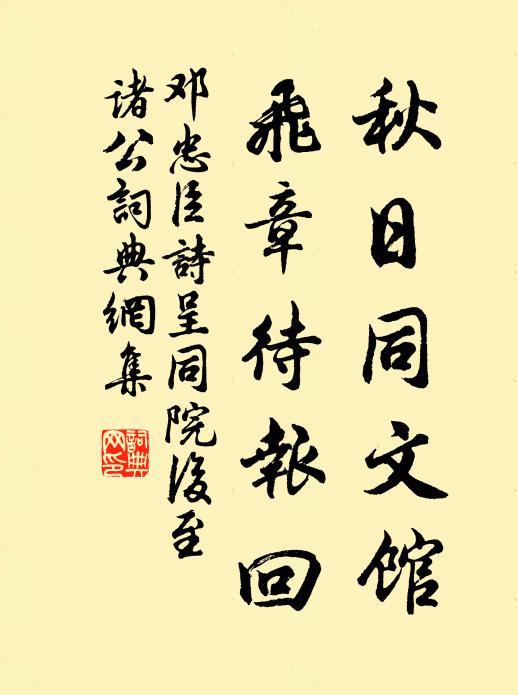 秋日同文館
飛章待報回
邓忠臣詩呈同院後至
諸公詞典網集
詞典網印